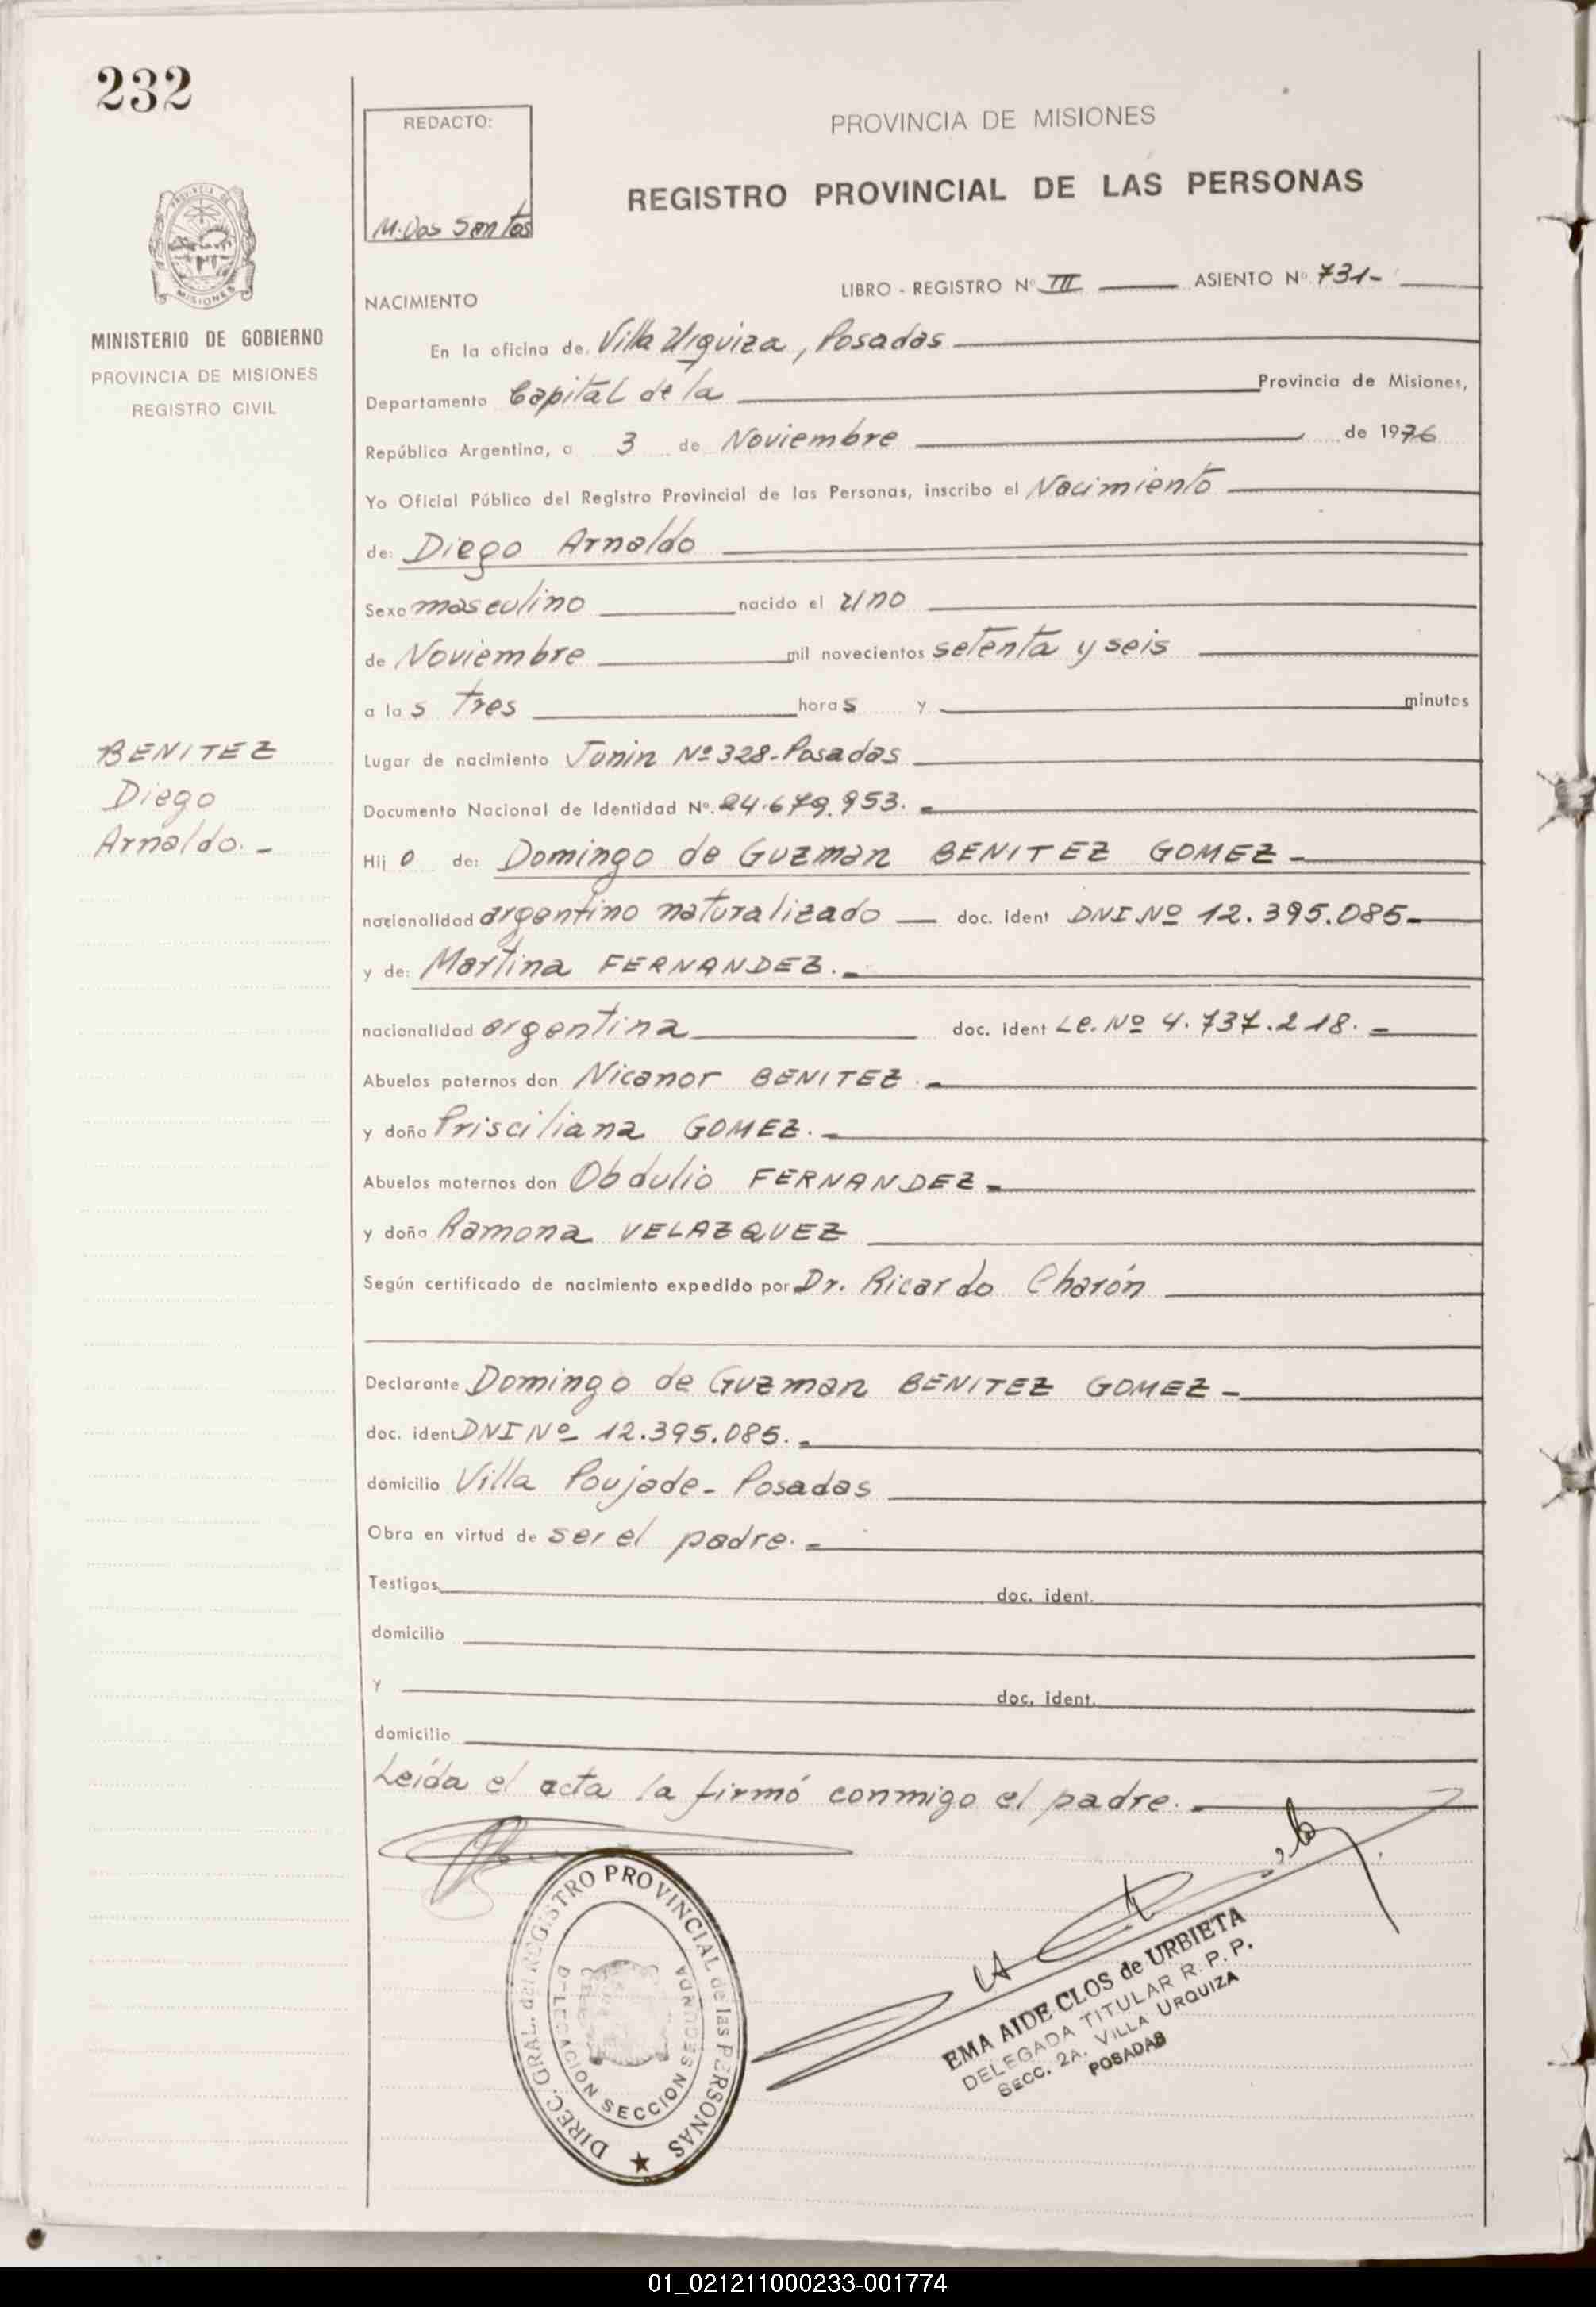 232
REDACTO:
M. Dos Santos
PROVINCIA DE MISIONES
REGISTRO PROVINCIAL DE LAS PERSONAS
PROVINCIA DE
MISIONES
MINISTERIO DE GOBIERNO
PROVINCIA DE MISIONES
REGISTRO CIVIL
NACIMIENTO
LIBRO - REGISTRO Nº III ASIENTO Nº 731-
En la oficina de Villa Urquiza, Posadas
Departamento Capital de la Provincia de Misiones,
República Argentina, a 3 de Noviembre de 1976
Yo Oficial Público del Registro Provincial de las Personas, inscribo el Nacimiento
de: Diego Arnaldo
Sexo masculino nacido el uno
de Noviembre mil novecientos setenta y seis
a las tres horas y minutos
Lugar de nacimiento Junin Nº 328-Posadas
Documento Nacional de Identidad Nº. 24.679.953.-
BENITEZ
Diego
Arnaldo.-
Hijo de: Domingo de Guzman BENITEZ GOMEZ-
nacionalidad argentino naturalizado — doc. ident DNI.Nº 12.395.085-
y de: Martina FERNANDEZ.-
nacionalidad argentina doc. ident Le. Nº 4.737.218.-
Abuelos paternos don Nicanor BENITEZ.-
y doña Prisciliana GOMEZ.-
Abuelos maternos don Obdulio FERNANDEZ-
y doña Ramona VELAZQUEZ
Según certificado de nacimiento expedido por Dr. Ricardo Charón
Declarante Domingo de Guzman BENITEZ GOMEZ-
doc. ident DNI Nº 12.395.085.-
domicilio Villa Poujade- Posadas
Obra en virtud de ser el padre.-
Testigos doc. ident.
domicilio
y doc. ident.
domicilio
Leída el acta la firmó conmigo el padre.-
DIREC. GRAL. del REGISTRO PROVINCIAL de las PERSONAS
DELEGACION SECCION SEGUNDA
EMA AIDE CLOS de URBIETA
DELEGADA TITULAR R. P. P.
SECC. 2A. VILLA URQUIZA
POSADAS
01_021211000233-001774